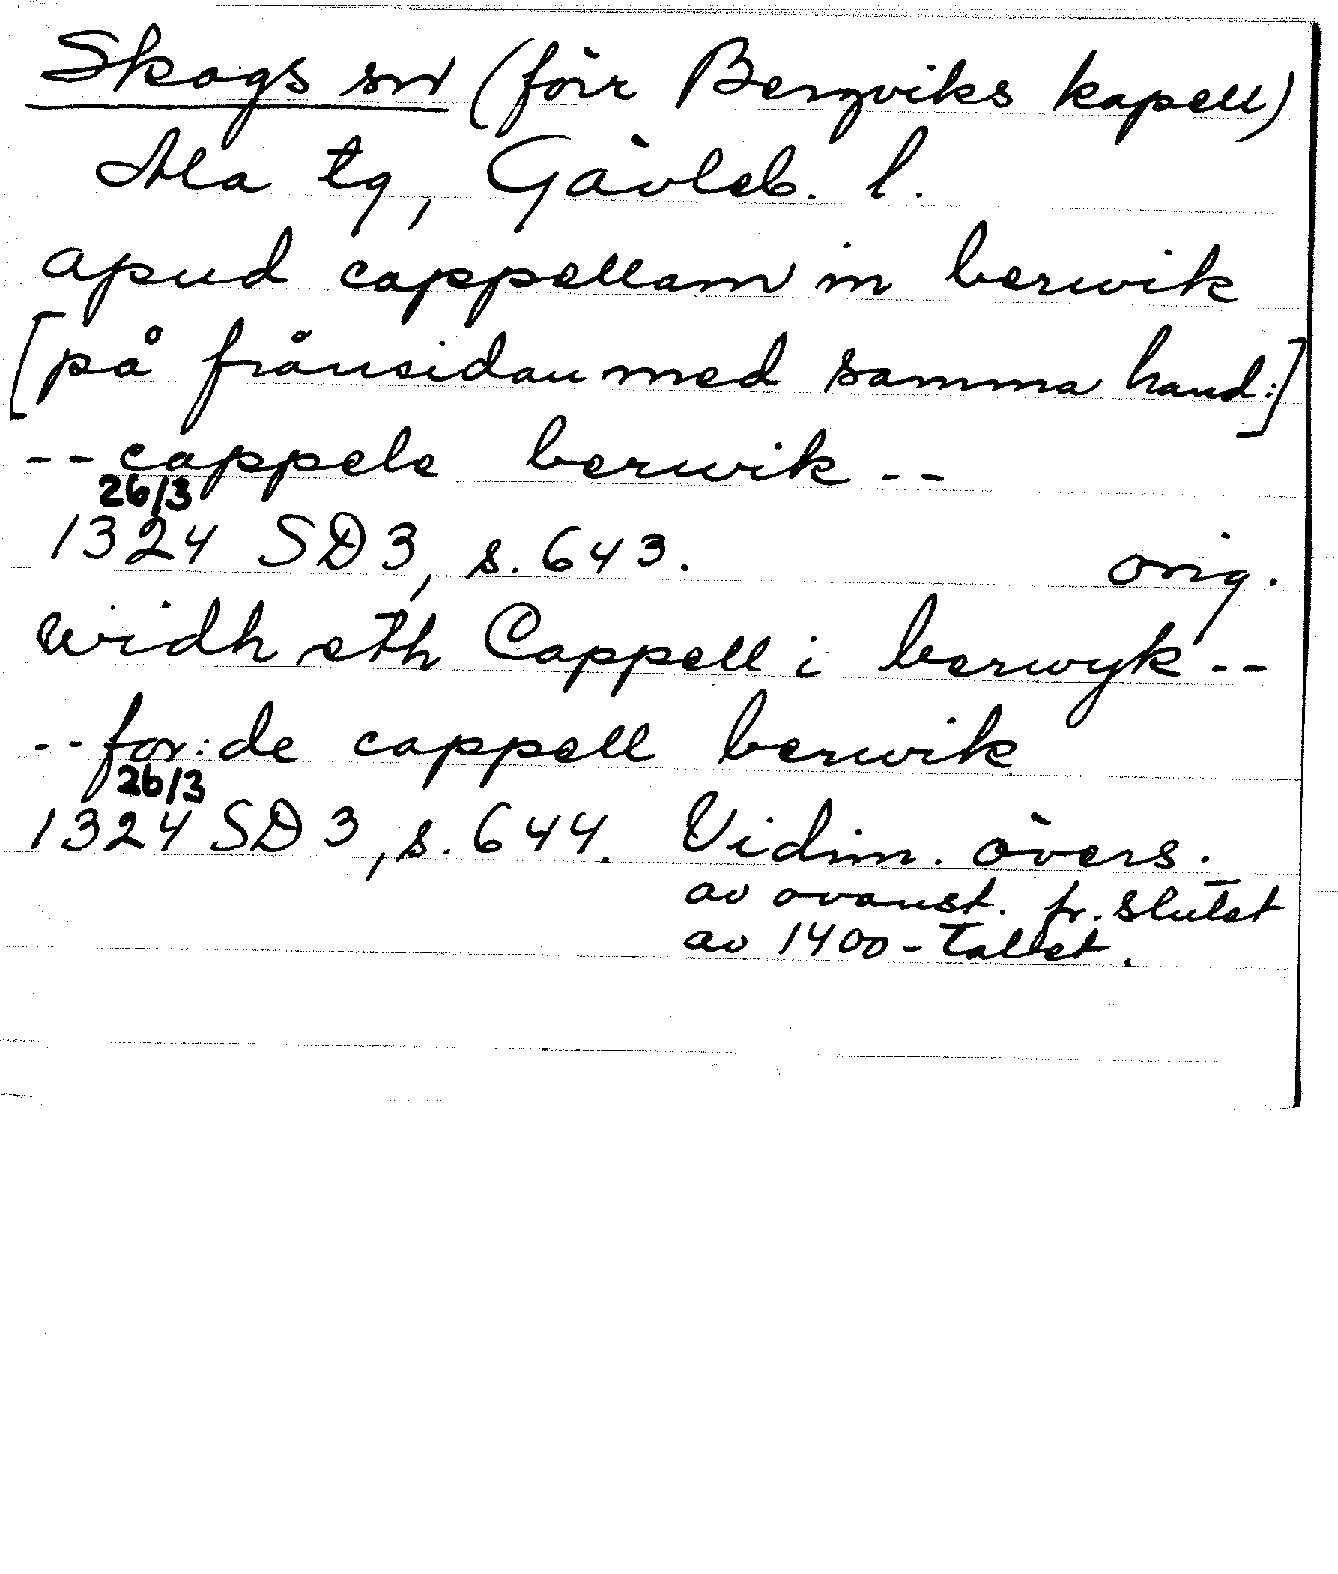 Skogs sn (förr Bergviks kapell)
Ala tg, Gävleb. l.
apud cappellam in berwik
[på frånsidan med samma hand:]
-- cappele berwik --
26/3
1324 SD 3, s. 643. orig.
widh eth Cappell i berwyk --
-- for:de cappell berwik
26/3
1324 SD 3, s. 644. Vidim. övers.
av ovanst. fr. slutet
av 1400-talet.